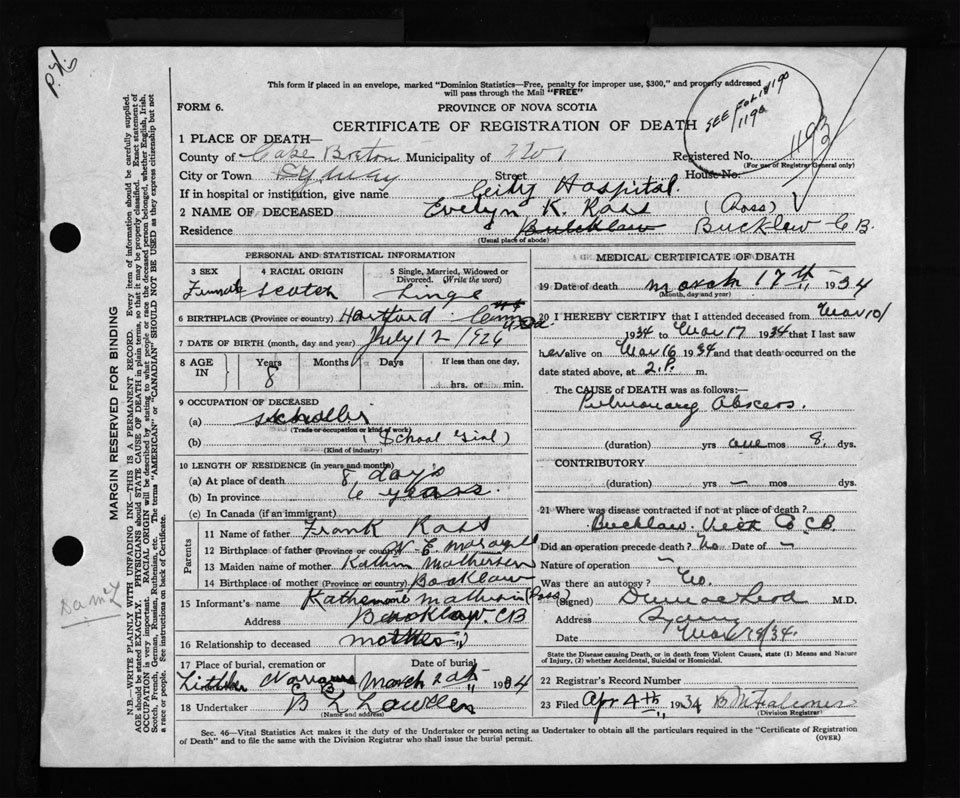 This form if placed in an envelope, marked "Dominion Statistics—Free, penalty for improper use, $300," and properly addressed
will pass through the Mail "FREE"
FORM 6.
PROVINCE OF NOVA SCOTIA
SEE
1190
CERTIFICATE OF REGISTRATION OF DEATH
1193
1 PLACE OF DEATH—
County of Cape Breton Municipality of
Registered No.
(For use of Registrar General only)
City or Town Sydney Street House No.
If in hospital or institution, give name City Hospital.
2 NAME OF DECEASED Evelyn K. Ross (Ross)
Residence Bucklaw Bucklaw CB.
(Usual place of abode)
PERSONAL AND STATISTICAL INFORMATION
3 SEX
4 RACIAL ORIGIN
5 Single, Married, Widowed or Divorced. (Write the word)
Female Scotch Single
6 BIRTHPLACE (Province or country) Hartford Conn
7 DATE OF BIRTH (month, day and year) July 12 1926
8 AGE IN
Years
Months
Days
If less than one day,
8
hrs. or min.
9 OCCUPATION OF DECEASED
(a)
(Trade or occupation or kind of work)
(b) (School Girl)
(Kind of industry)
10 LENGTH OF RESIDENCE (in years and months)
(a) At place of death 8 days
(b) In province 6 years.
(c) In Canada (if an immigrant)
Parents
11 Name of father Frank Ross
12 Birthplace of father (Province or country)
13 Maiden name of mother
14 Birthplace of mother (Province or country) Bucklaw
15 Informant's name (Ross)
Address CB
16 Relationship to deceased Mother
17 Place of burial, cremation or
Date of burial
Little Narrows March 20th 1934
C B
18 Undertaker
(Name and address)
MEDICAL CERTIFICATE OF DEATH
19 Date of death March 17th 1934
(Month, day and year)
20 I HEREBY CERTIFY that I attended deceased from Mar 10/
1934 to Mar 17 1934 that I last saw
her alive on Mar 16 1934 and that death occurred on the
date stated above, at 2. P. m.
The CAUSE of DEATH was as follows:—
Pulmonary Abscess.
(duration) yrs one mos 8 dys.
CONTRIBUTORY
(duration) yrs — mos dys.
21 Where was disease contracted if not at place of death?
Bucklaw Vict Co CB
Did an operation precede death? No Date of —
Nature of operation —
Was there an autopsy? No.
(Signed) M.D.
Address Sydney
Date Mar 19/34.
State the Disease causing Death, or in death from Violent Causes, state (1) Means and Nature
of Injury, (2) whether Accidental, Suicidal or Homicidal.
22 Registrar's Record Number
23 Filed Apr 4th 1934
(Division Registrar)
Sec. 46—Vital Statistics Act makes it the duty of the Undertaker or person acting as Undertaker to obtain all the particulars required in the "Certificate of Registration
of Death" and to file the same with the Division Registrar who shall issue the burial permit.
(OVER)
MARGIN RESERVED FOR BINDING
N.B.—WRITE PLAINLY WITH UNFADING INK—THIS IS A PERMANENT RECORD. Every item of information should be carefully supplied.
AGE should be stated EXACTLY. PHYSICIANS should STATE CAUSE OF DEATH in plain terms, so that it may be properly classified. Exact statement of
OCCUPATION is very important. RACIAL ORIGIN will be described by stating to what people or race the deceased person belonged, whether English, Irish,
Scotch, French, German, Russian, Ruthenian, etc. The terms "AMERICAN" or "CANADIAN" SHOULD NOT BE USED as they express citizenship but not
a race or people. See instructions on back of Certificate.